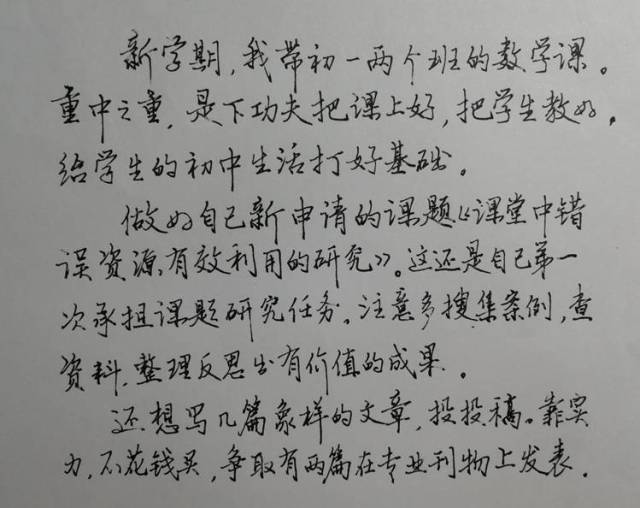 新学期,我带初一两个班的数学课。
重中之重,是下功夫把课上好,把学生教好,
给学生的初中生活打好基础。
做好自己新申请的课题《课堂中错
误资源有效利用的研究》。这还是自己第一
次承担课题研究任务。注意多搜集案例,查
资料,整理反思出有价值的成果。
还想写几篇象样的文章,投投稿。靠实
力,不花钱买,争取有两篇在专业刊物上发表.